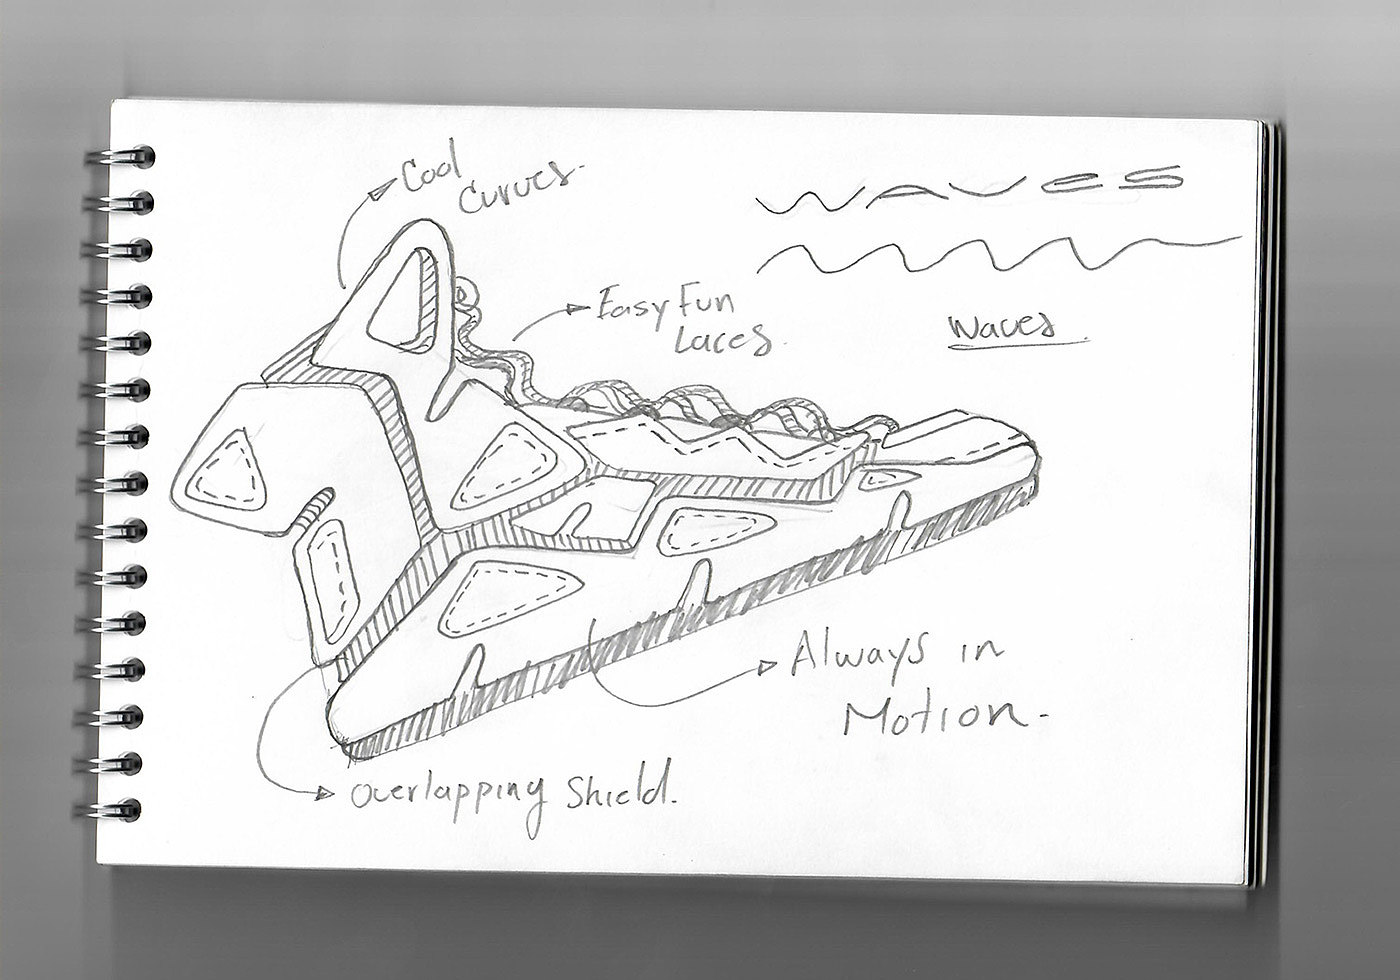 Cool
Curves.
WAVES
Easy Fun
Laces.
Waves.
Always in
Motion.
Overlapping Shield.